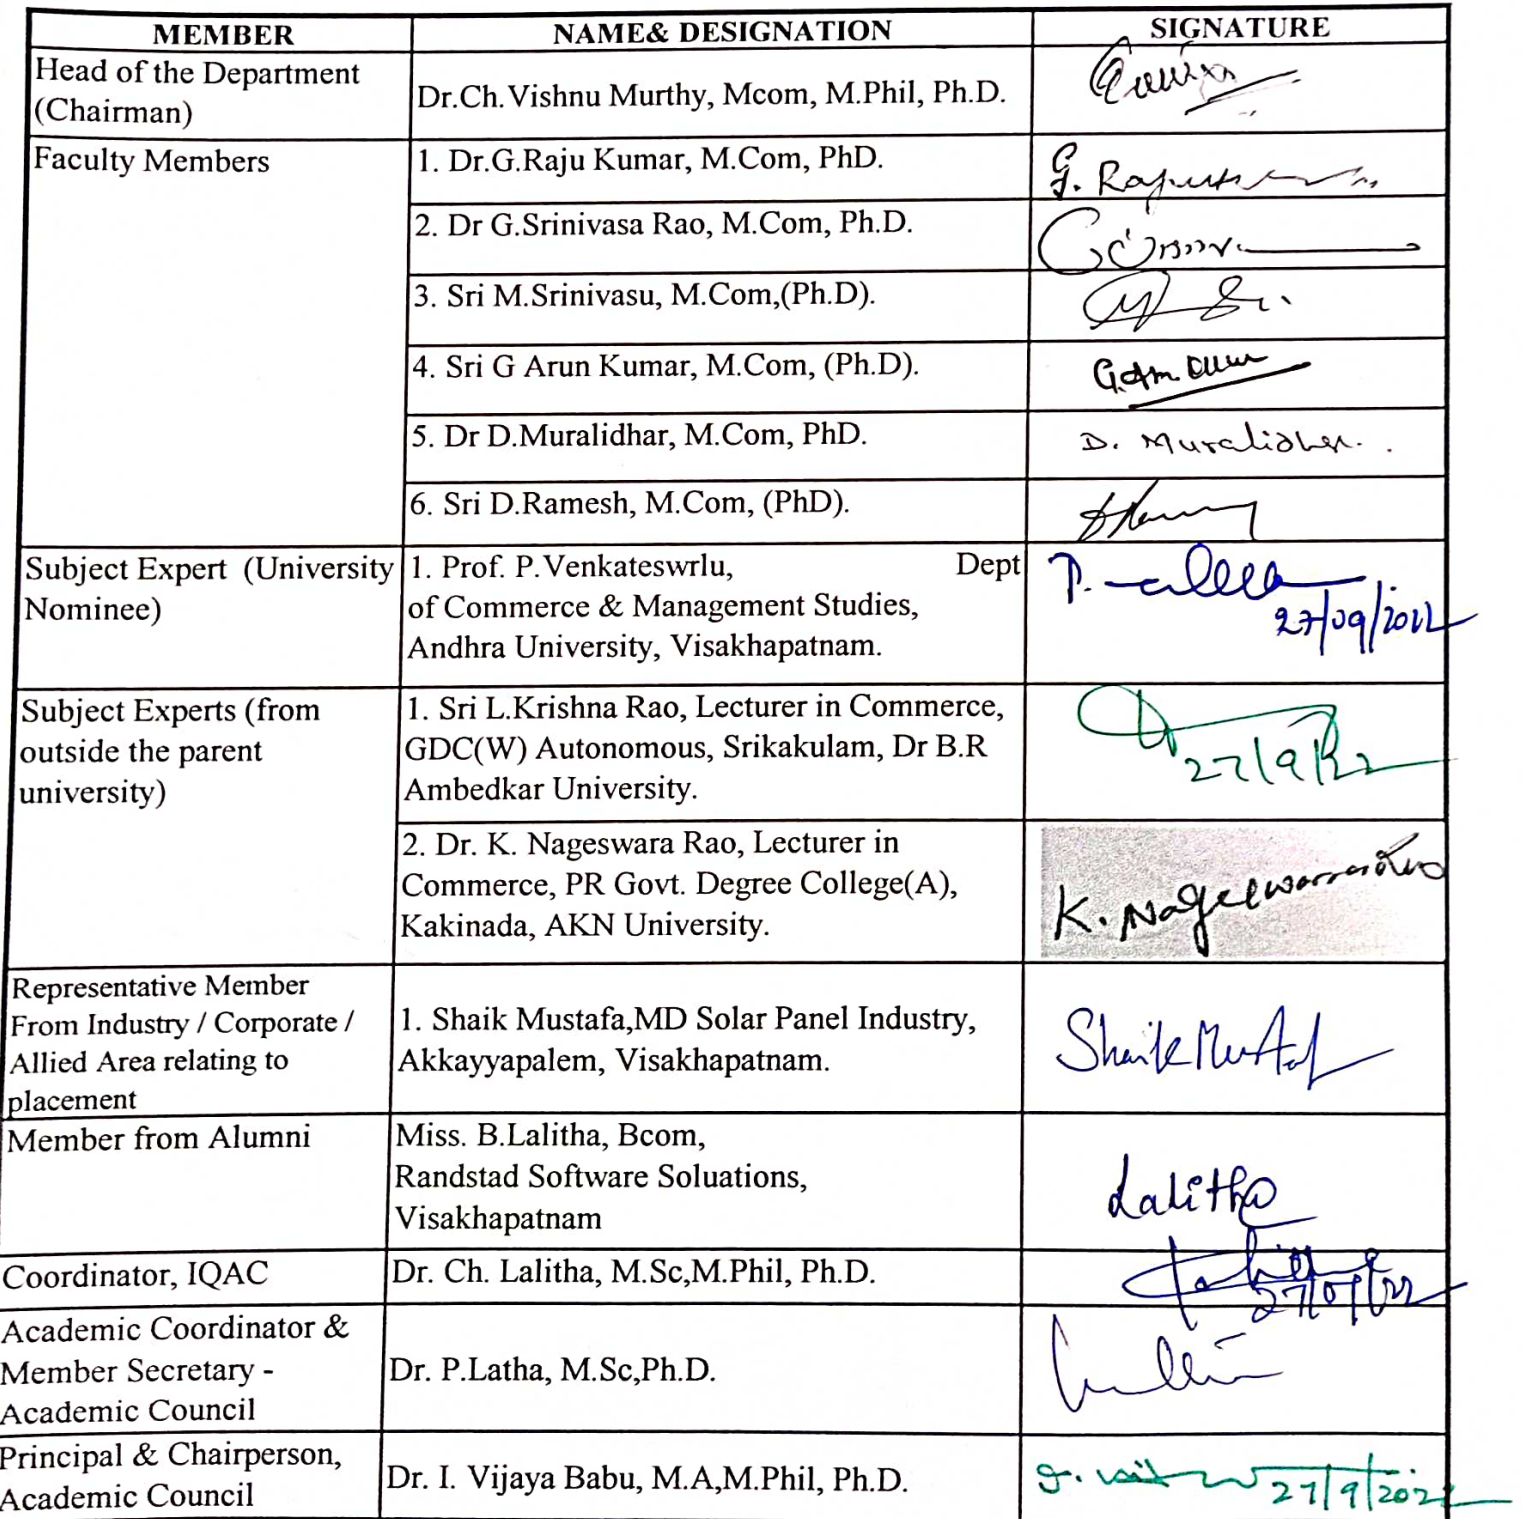 MEMBER NAME& DESIGNATION SIGNATURE
Head of the Department
(Chairman)
Dr.Ch.Vishnu Murthy, Mcom, M.Phil, Ph.D.
Faculty Members
1. Dr.G.Raju Kumar, M.Com, PhD.
2. Dr G.Srinivasa Rao, M.Com, Ph.D.
3. Sri M.Srinivasu, M.Com,(Ph.D).
4. Sri G Arun Kumar, M.Com, (Ph.D).
5. Dr D.Muralidhar, M.Com, PhD.
D. Muralidhar.
6. Sri D.Ramesh, M.Com, (PhD).
Subject Expert (University
Nominee)
1. Prof. P.Venkateswrlu, Dept
of Commerce & Management Studies,
Andhra University, Visakhapatnam.
27/09/2022
Subject Experts (from
outside the parent
university)
1. Sri L.Krishna Rao, Lecturer in Commerce,
GDC(W) Autonomous, Srikakulam, Dr B.R
Ambedkar University.
27/9/22
2. Dr. K. Nageswara Rao, Lecturer in
Commerce, PR Govt. Degree College(A),
Kakinada, AKN University.
K. Nageswararao
Representative Member
From Industry / Corporate /
Allied Area relating to
placement
1. Shaik Mustafa,MD Solar Panel Industry,
Akkayyapalem, Visakhapatnam.
Shaik Mustaf
Member from Alumni
Miss. B.Lalitha, Bcom,
Randstad Software Soluations,
Visakhapatnam
Lalitha
Coordinator, IQAC
Dr. Ch. Lalitha, M.Sc,M.Phil, Ph.D.
27/09/22
Academic Coordinator &
Member Secretary -
Academic Council
Dr. P.Latha, M.Sc,Ph.D.
Principal & Chairperson,
Academic Council
Dr. I. Vijaya Babu, M.A,M.Phil, Ph.D.
27/9/2022